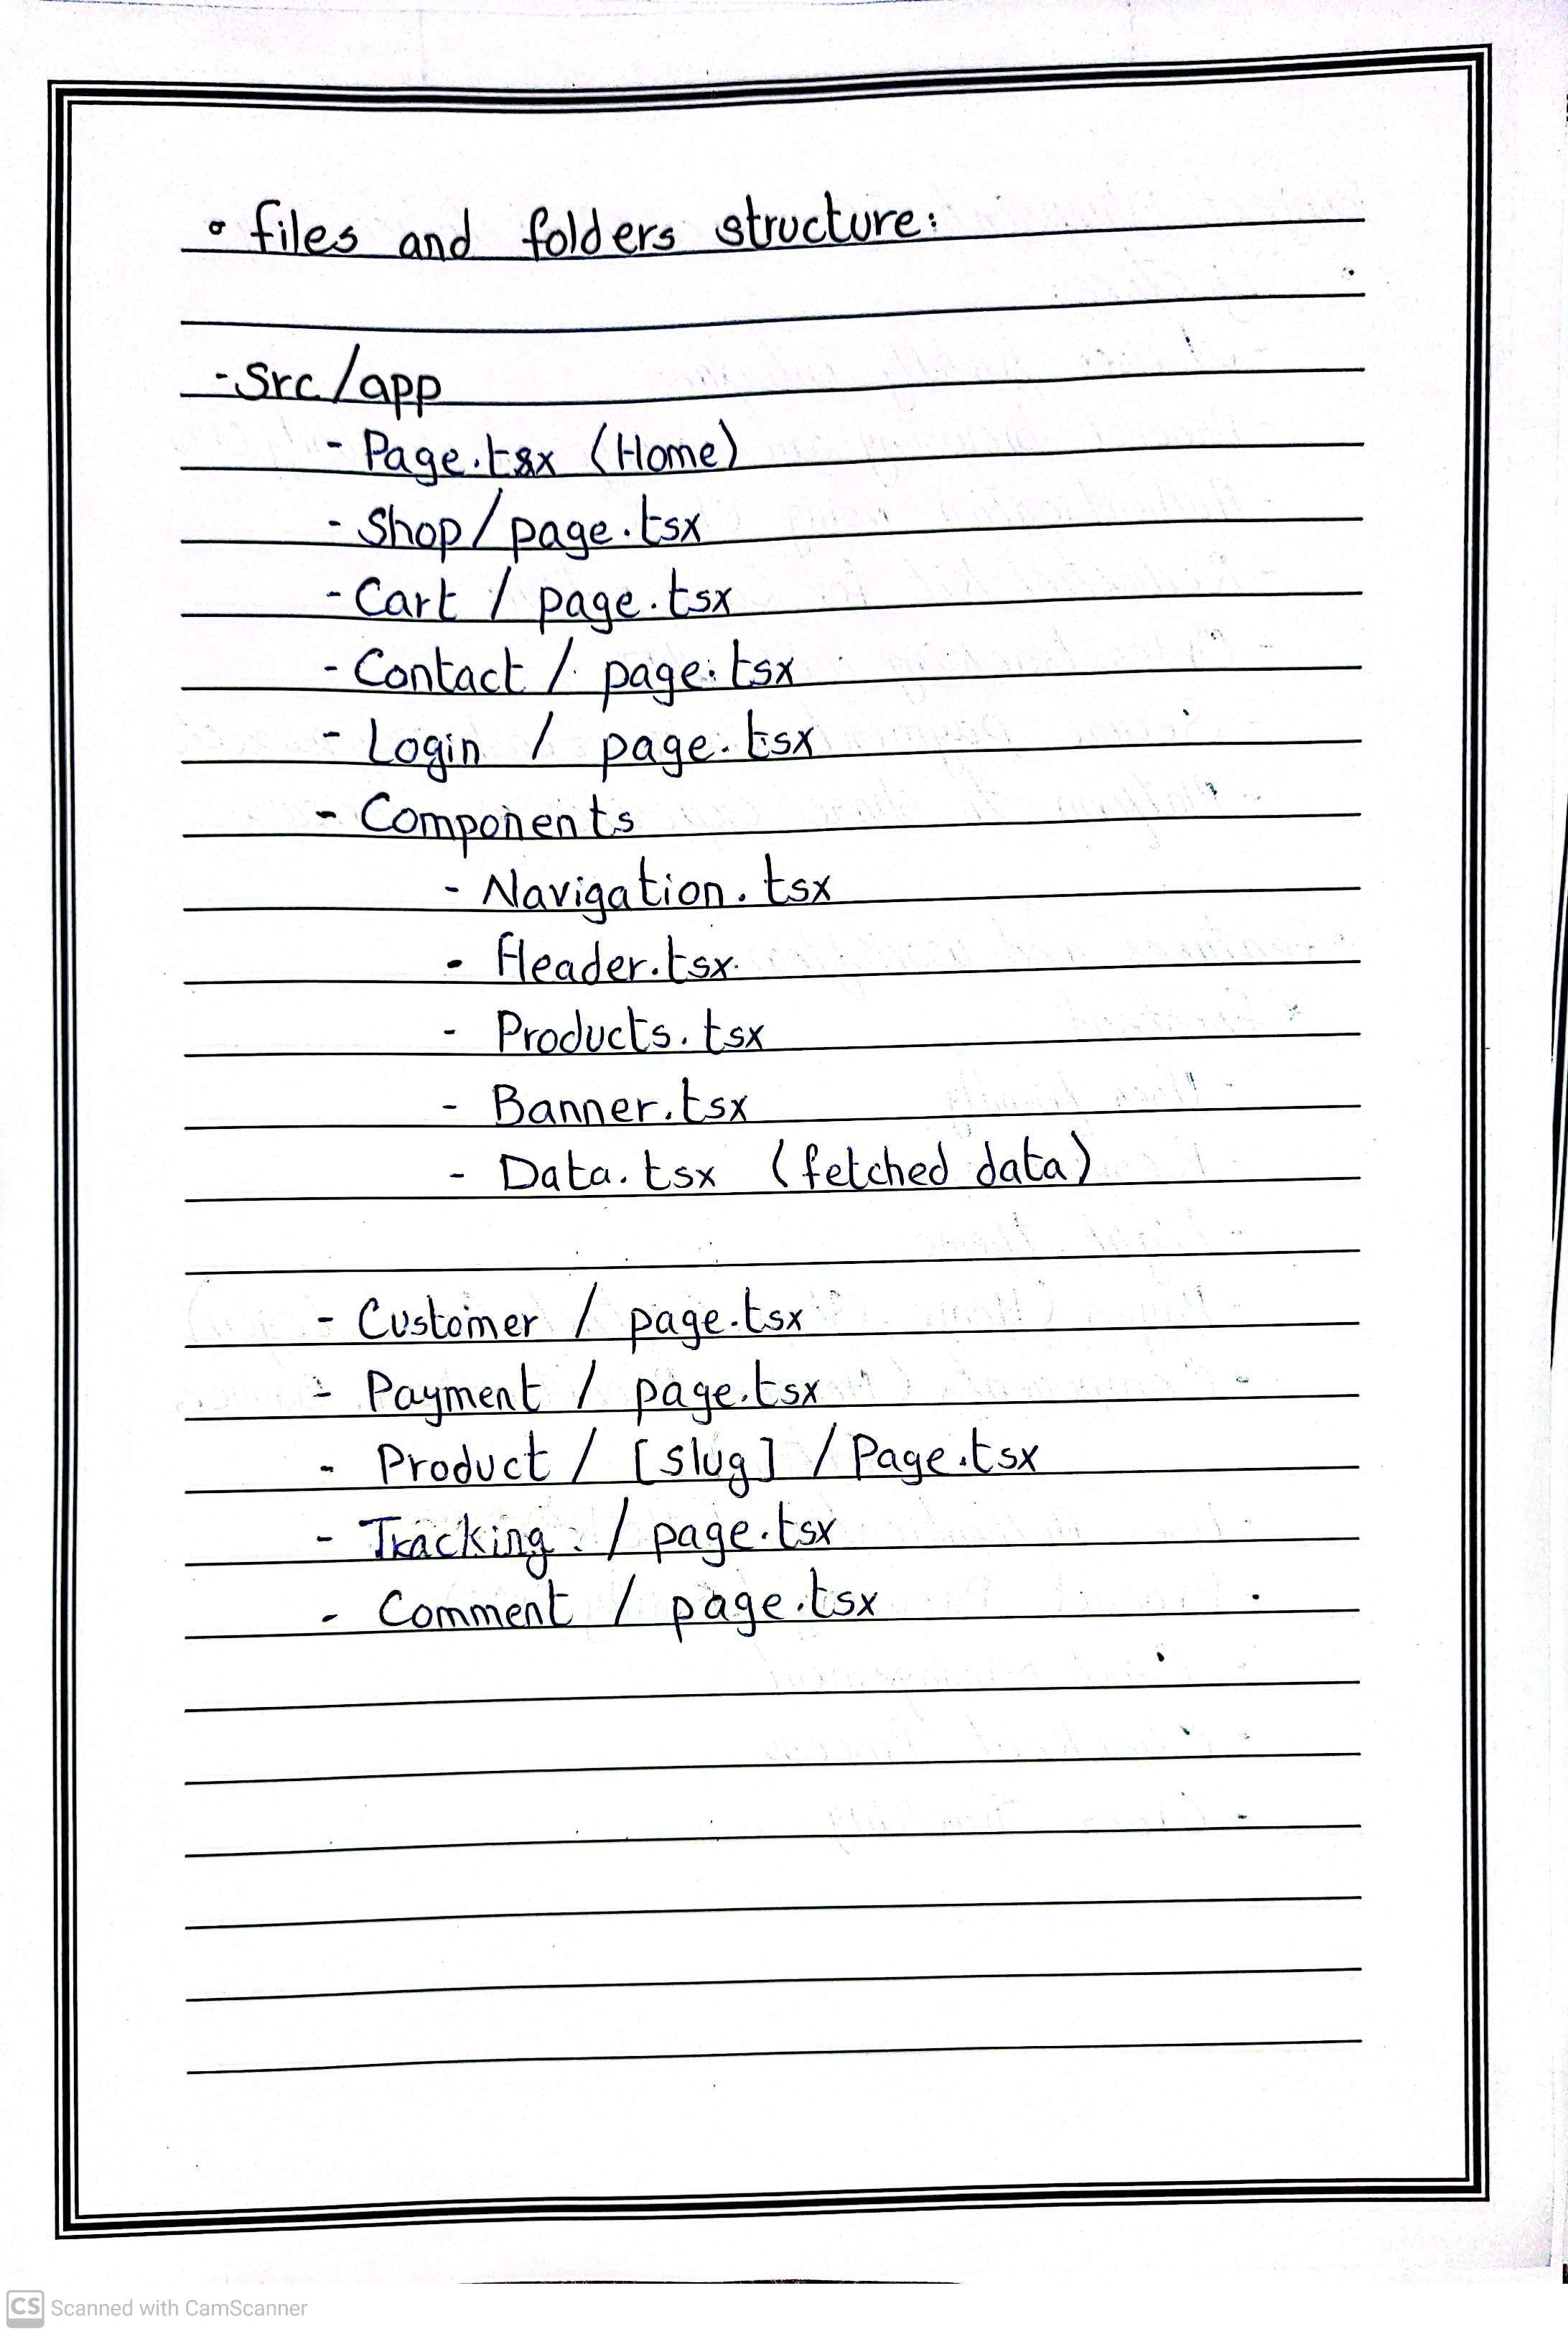 • files and folders structure:
- Src/app
- Page.tsx (Home)
- Shop/page.tsx
- Cart / page.tsx
- Contact / page.tsx
- Login / page.tsx
- Components
- Navigation.tsx
- Header.tsx
- Products.tsx
- Banner.tsx
- Data.tsx (fetched data)
- Customer / page.tsx
- Payment / page.tsx
- Product / [slug] / Page.tsx
- Tracking / page.tsx
- Comment / page.tsx
CS Scanned with CamScanner